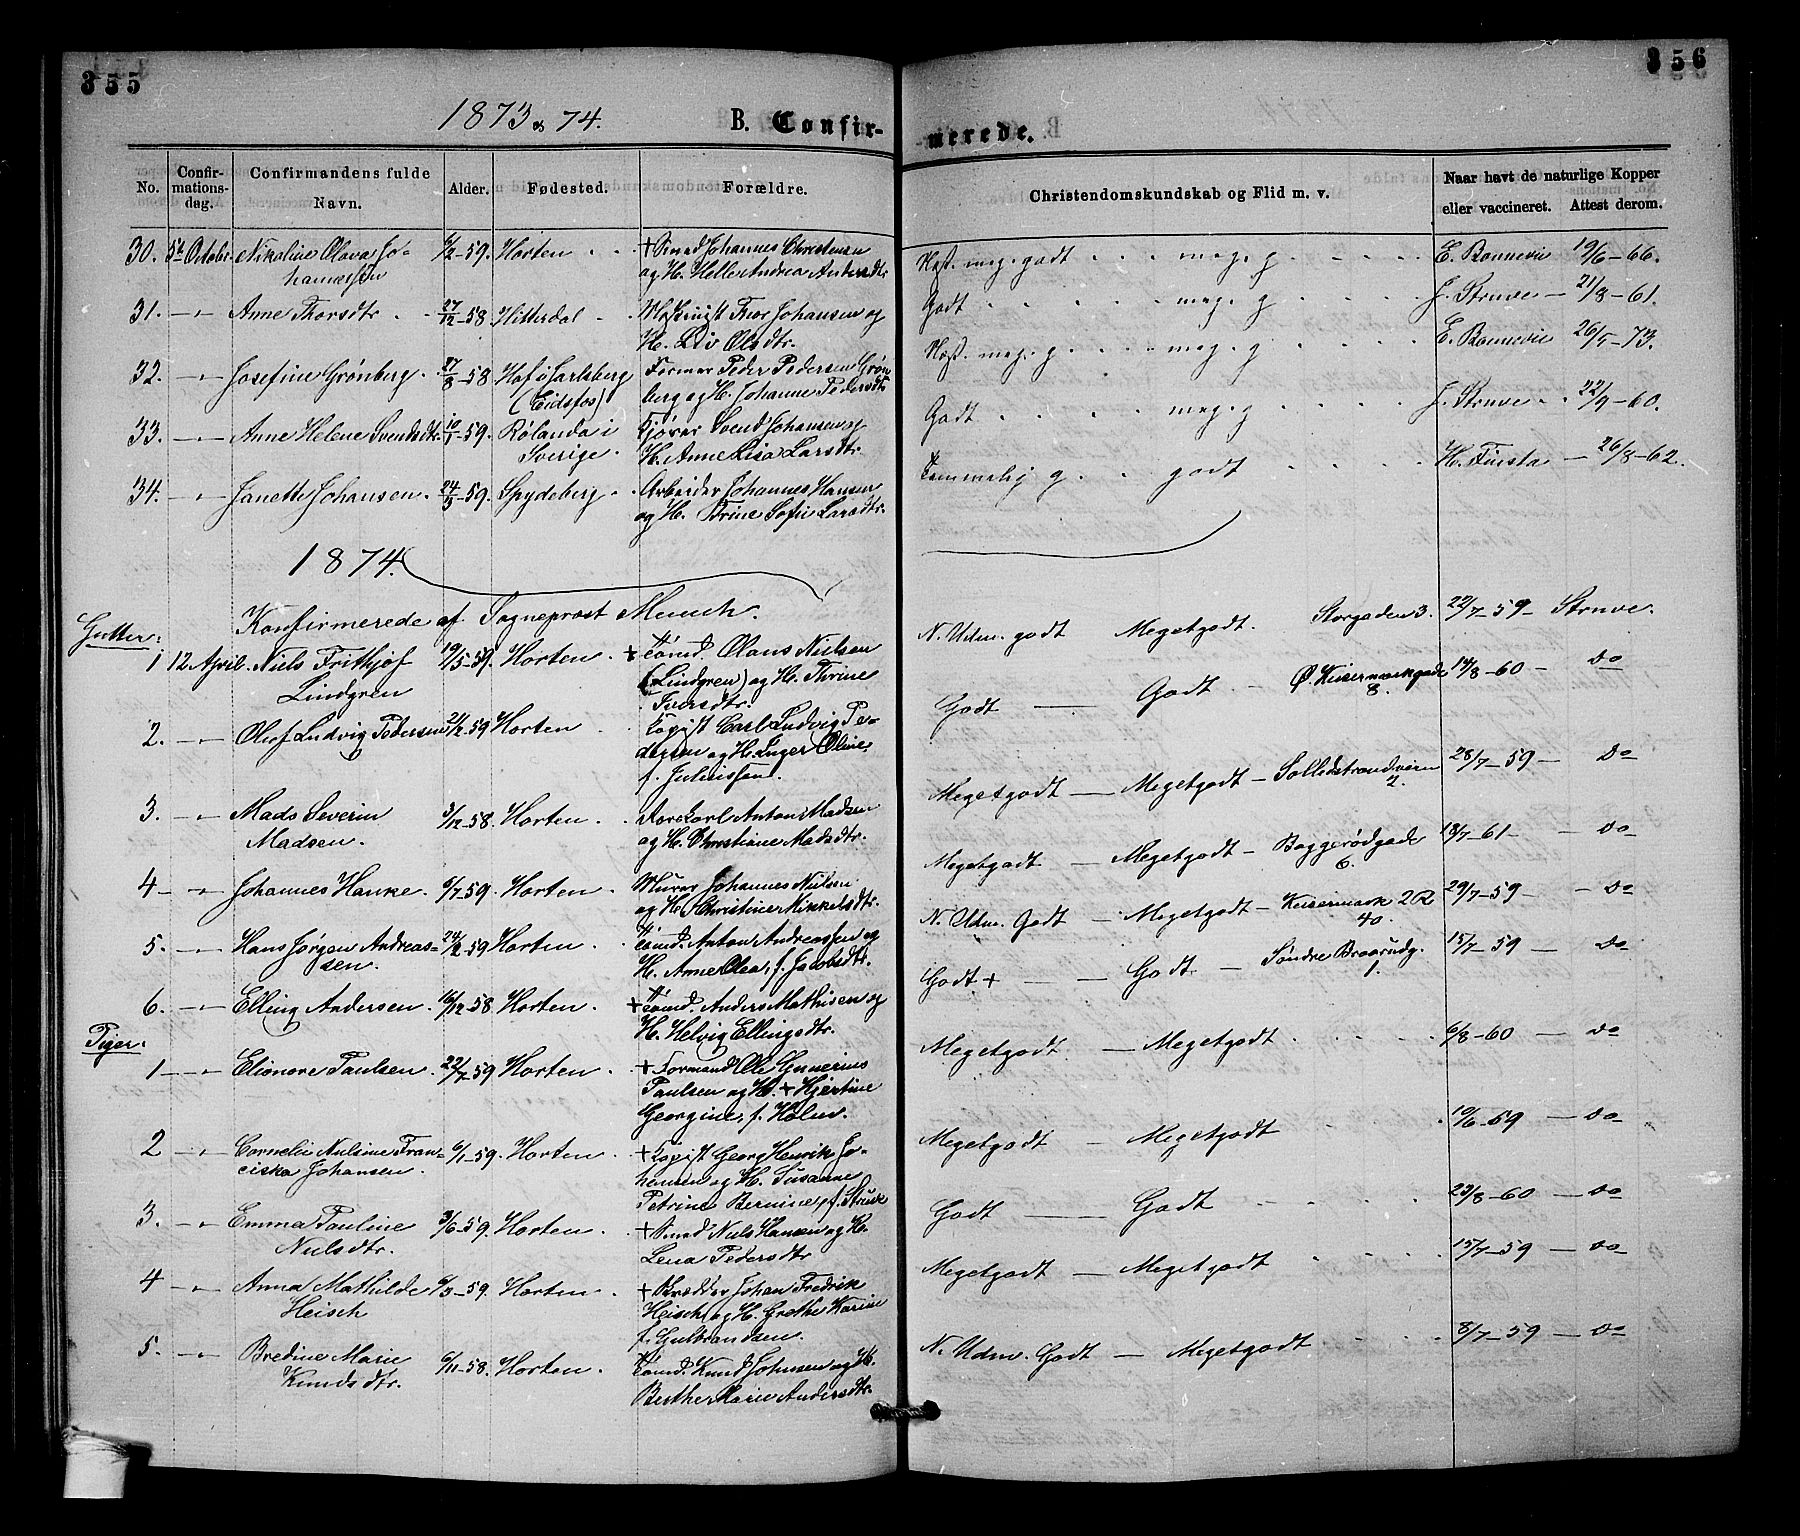 355
356
1873 & 74.
B. Confir-
merede.
No.
Confir-
mations-
dag.
Confirmandens fulde
Navn.
Alder.
Fødested.
Forældre.
Christendomskundskab og Flid m. v.
Naar havt de naturlige Kopper
eller vaccineret. Attest derom.
30. 5te October Nikoline Olava Jo- 6/2-59. Horten + Smed Johannes Christensen
hannessen og H. Helle Andrea Andersdtr
Næst. meg. godt meg. g E. Bonnevie 19/6-66.
31. -"- Anne Thorsdtr 27/12-58 Hitterdal Maskinist Thor Johansen og
H. Liv Olsdtr.
Godt meg. g J. Struve - 21/8-61.
32. -"- Josefine Grønberg. 27/8-58 Hof i Jarlsberg Former Peder Pedersen Grøn
(Eidsfos) berg og H. Johanne Pedersdtr
Næst. meg. g. meg. g E. Bonnevie 26/5-73.
33. -"- Anne Helene Svendsdtr. 10/1-59. Rølanda i Kjører Svend Johansen og
Sverige. H. Anne Lisa Larsdtr.
Godt meg. g J. Struve 22/9-60.
34. -"- Janette Johansen. 24/3-59. Spydeberg Arbeider Johannes Hansen
og H. Trine Sofie Larsdtr.
Temmelig g. godt H. Finsta - 26/8-62.
1874.
Konfirmerede af Sogneprøst Munch.
Gutter:
1 12 April. Niels Frithjof 19/5-59. Horten. + Tømd Olaus Nielsen
Lindgren (Lindgren) og H. Thrine
Iversdtr.
N. Udm. godt Megetgodt. Storgaden 3. 22/7-59- Struve.
2. -"- Olof Ludvig Pedersen 21/2-59 Horten Kopist Carl Ludvig Pe-
dersen og H. Inger Oline,
f. Juliussen.
Godt Godt Ø. Keisermarkgade 14/8-60 - Do
8.
3. -"- Mads Severin 3/12-58. Horten. Rorskarl Anton Madsen
Madsen. og H. Christiane Madsdtr.
Megetgodt - Megetgodt - Sollistrandveien 28/7-59 - Do
2.
4 -"- Johannes Hanke. 6/7-59. Horten Murer Johannes Nielsen
og H. Christine Mikkelsdtr.
Megetgodt - Megetgodt - Baggerødgade 18/7-61 - Do
6.
5. -"- Hans Jørgen Andreas- 24/2-59 Horten. Tømd. Anton Andreassen og
sen. H. Anne Olea, f. Jacobsdtr.
N. Udm. Godt - Megetgodt - Keisermark 2R 29/7-59 - Do
40.
6. -"- Elling Andersen. 16/12-58 Horten. + Tømd. Anders Mathisen og
H. Helvig Ellingsdtr.
Godt + - Godt. - Søndre Braarudg. 15/7-59 - Do
1.
Piger:
1 -"- Elionore Paulsen. 22/7-59 Horten. + Formand Ole Gunerius
Paulsen og H. + Hjertine
Georgine, f. Holm.
Megetgodt - Megetgodt 6/8-60 - Do
2 -"- Cornelie Nulsine Fran- 6/1-59. Horten. + Kopist Georg Henrik Jo-
ciska Johansen. hansen og H. Susanne
Petrine Bernine, f. Strunk
Megetgodt - Megetgodt 19/6-59 - Do
3. -"- Emma Pauline 3/6-59. Horten. + Smed Niels Hansen og H.
Nielsdtr. Lena Pedersdtr
Godt - Godt 23/8-60 - Do
4 -"- Anna Mathilde 6/3-59. Horten. + Skrædder Johan Fredrik
Heisch Heisch og H. Grethe Karine
f. Gulbrandsen.
Megetgodt - Megetgodt 15/7-59 - Do
5. -"- Bredine Marie 6/11-58. Horten. Tømd. Knud Johnsen og H.
Knudsdtr. Berthe Marie Andersdtr.
N. Udm. Godt - Megetgodt 8/7-59 - Do